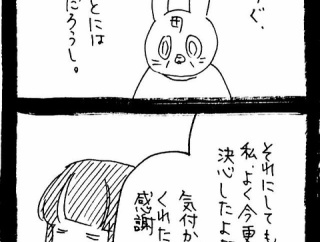 ぐ、
とには
だろうし。
それにしても
私、よく今更
決心したよな
気付か
くれた
感謝